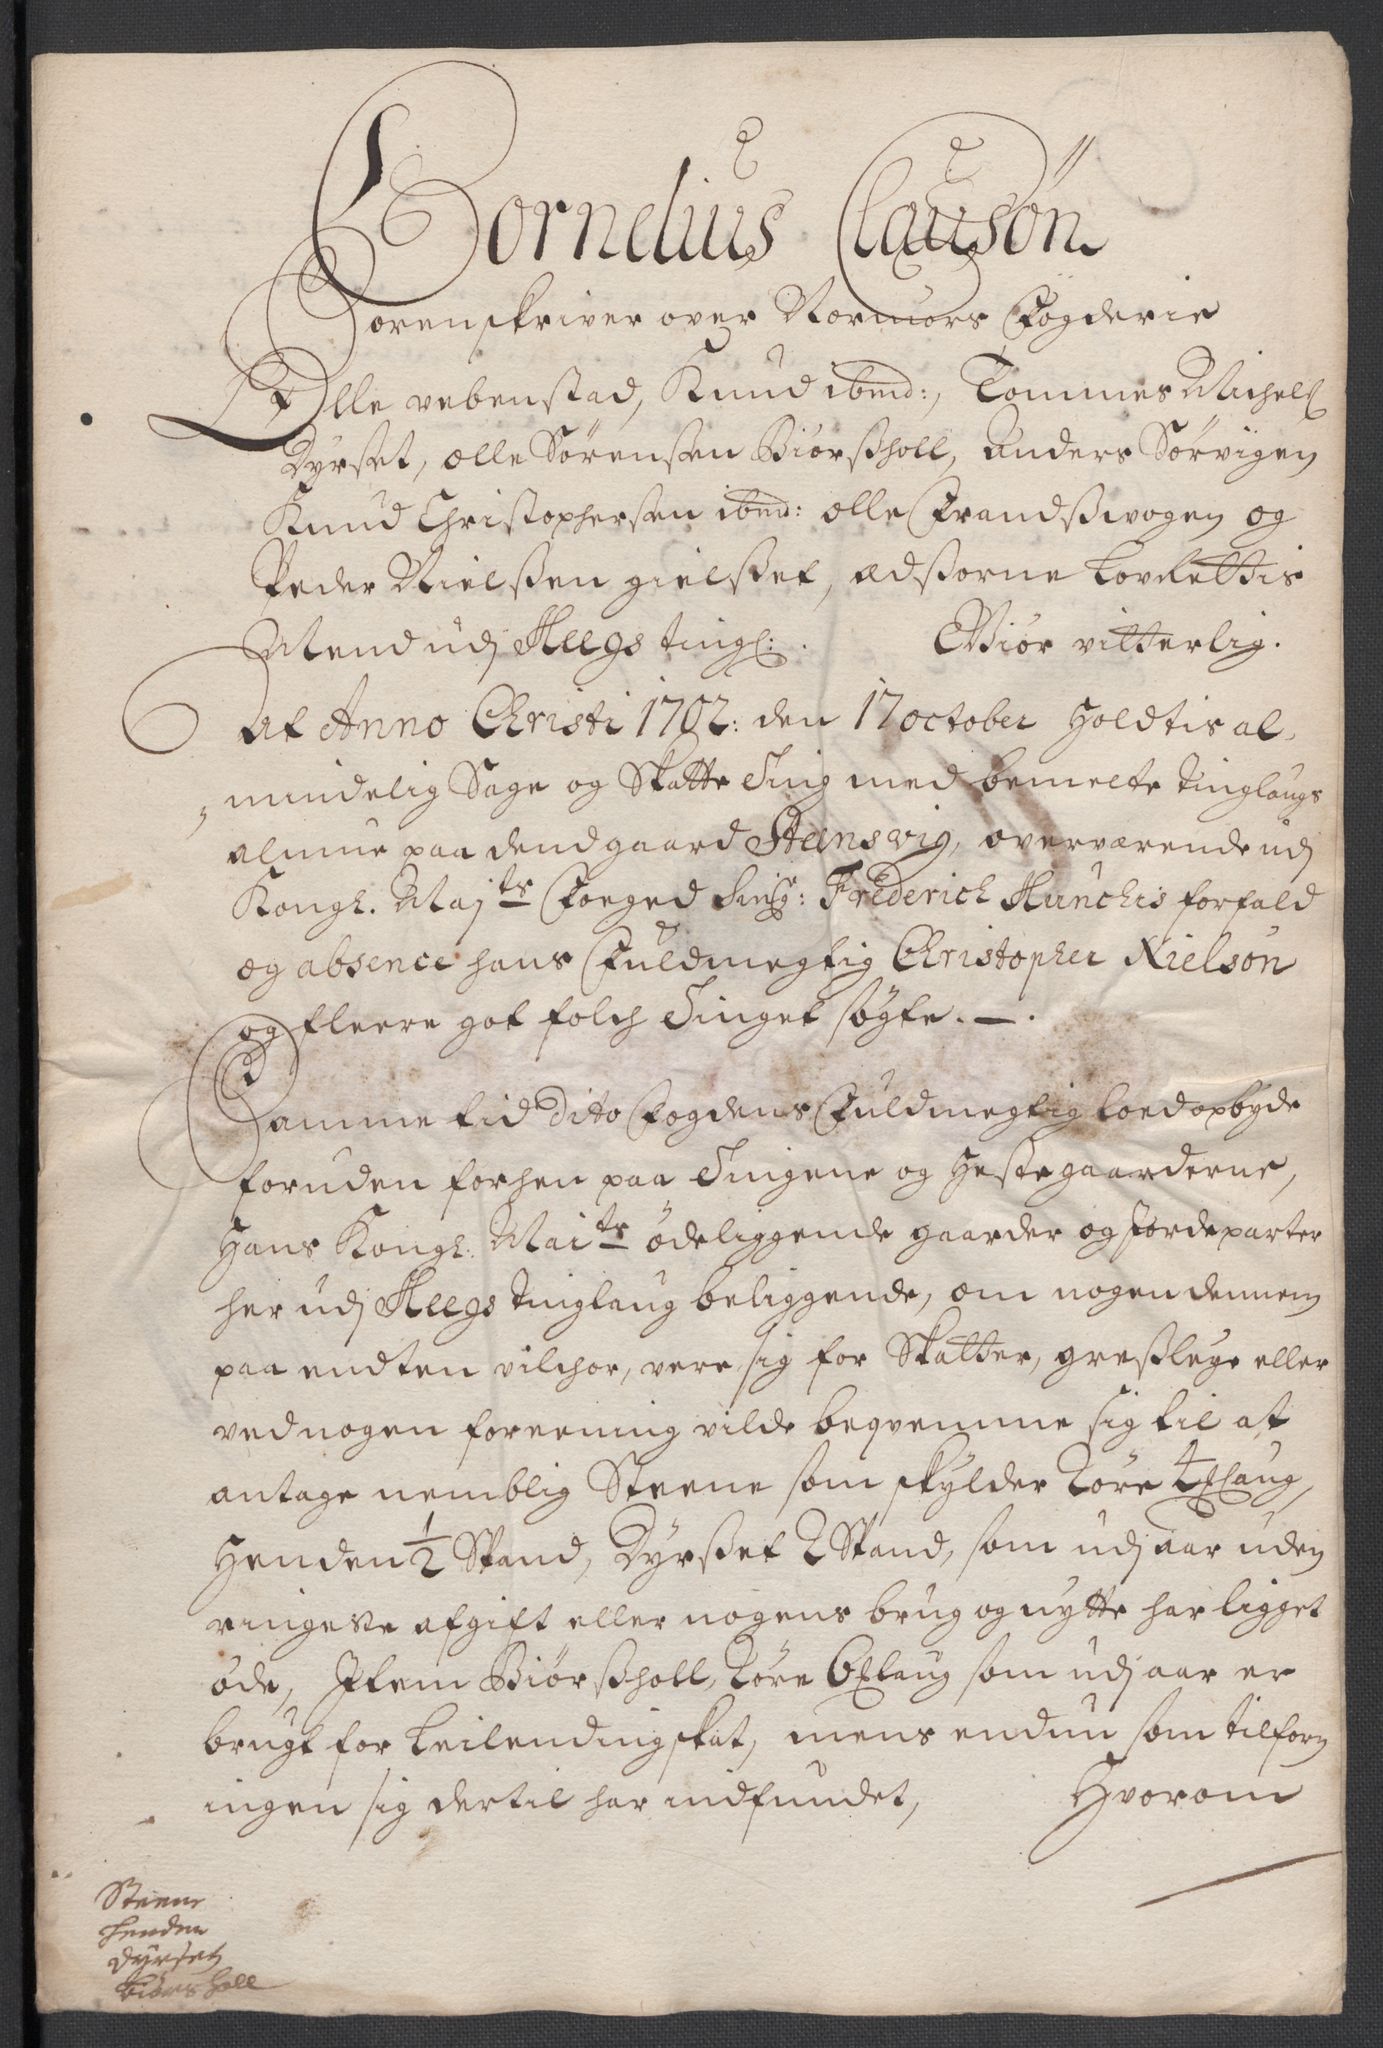 Cornelius Clausøn
Sorenskriver over Normørs Fogderie
Olle rebenstad, Knud ibmd:, Tommes Michels:
Dyrset, olle Sørensen Biørsholl, Anders Sørvigen
Knud Christophersen ibmd: olle Frandsvogen og
Peder Nielssen gielsset, Edsorne Lovrettis
Mend udj Heegs tingl: Giør vitterlig.
At Anno Christi 1702: den 17 october Holdtis al,
mindelig Sage og Skatte Ting med bemelte tinglaugs
almue paa dend gaard Steenswig, overværende udj
Kongl. Maj:ts Foeged Sr: Frederich Hunchis forfald
og absence hans Fuldmegtig Christopher Nielsøn
og fleere got folch Tinget søgte. —.
Samme tid Dito Fogdens Fuldmegtig loed opbyde
foruden forhen paa Tingene og Hestegaarderne,
Hans Kongl. Mai:ts ødeliggende gaarder og jordeparter
her udj Heegs tinglaug beliggende, om nogen dennem
paa endten vilchor, vere sig for Skatter, gressleye eller
ved nogen foreening vilde beqvemme sig til at
antage nemblig Steene som skylder Aare laug,
Henden 1/2 Spand, Dyrsset 2 Spand, som udj aar uden
ringeste afgift eller nogens brug og nytte har ligget
øde, Item Biørssholl, som udj aar er
brugt for Leilending skat, mens endnu som tilforn
ingen sig dertil har indfundet, Hvorom
Steene
Henden
Dyrset
Biørsholl